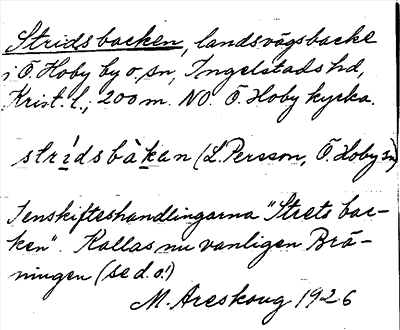 Stridsbacken, landsvägsbacke
i Ö. Hoby by o. sn, Ingelstads hd,
Krist. l., 200 m. NO. Ö. Hoby kyrka.
strídsbàkan (L. Persson, Ö. Hoby sn)
I enskifteshandlingarna "Strets bac-
ken". Kallas nu vanligen Brå-
ningen (se d. o.!)
M. Areskoug 1926